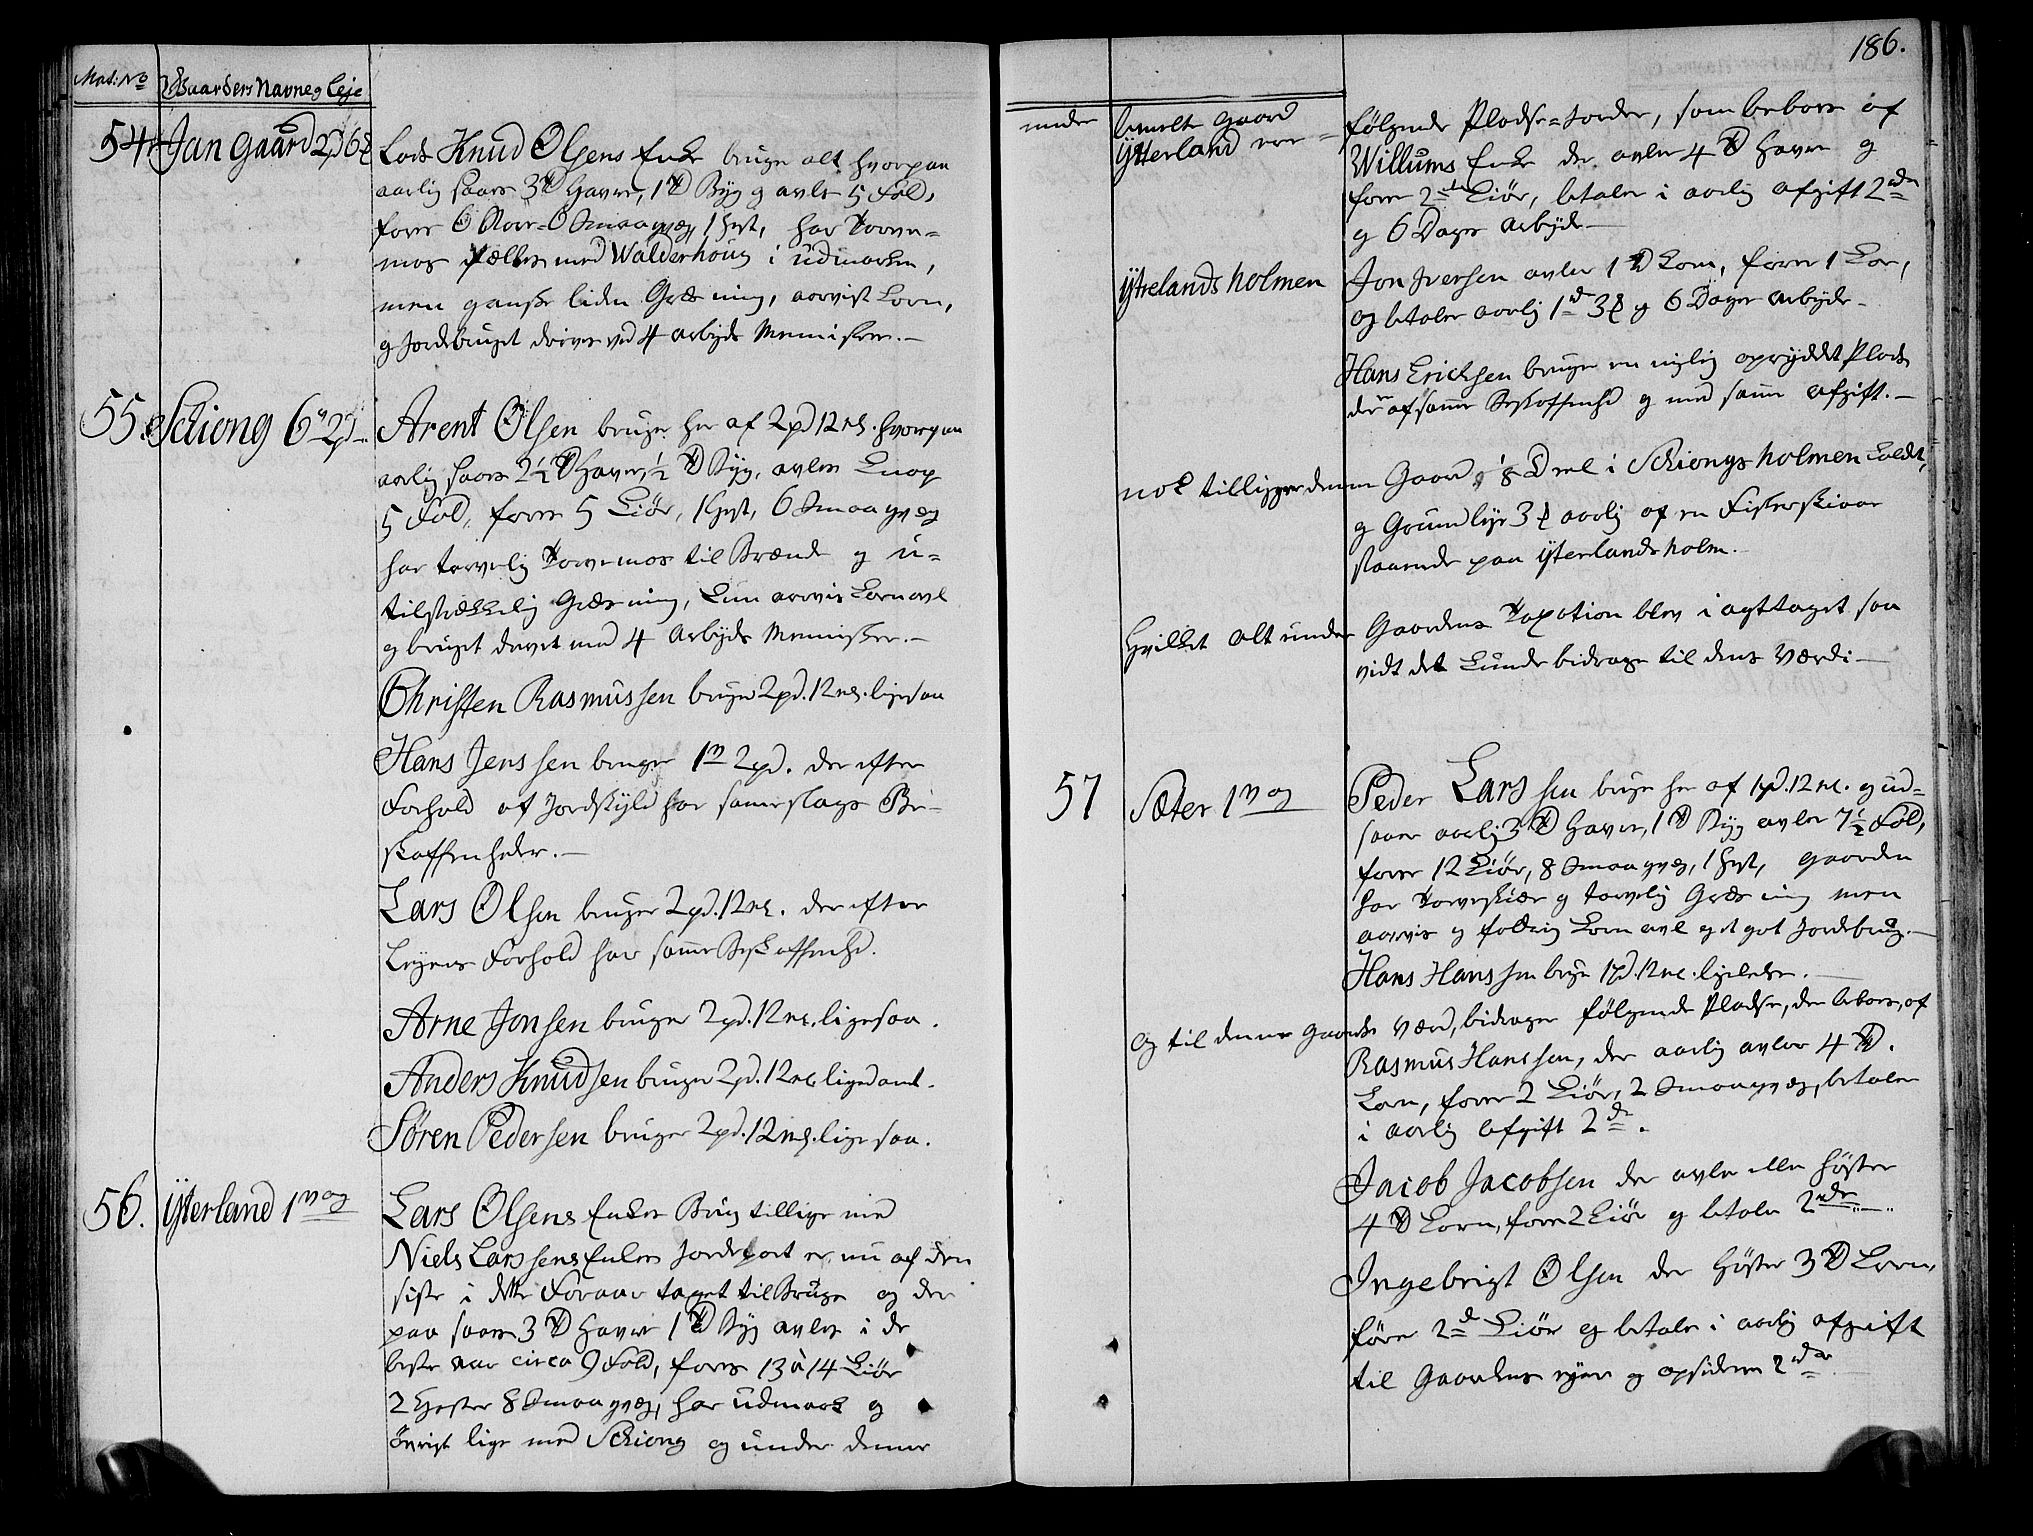 Mat: No Gaarders Navne og Leje
54 Jan Gaard 2
Lods Knud Olsens Enke bruge alt hvorpaa
aarlig saaes 3 Haver, 1 Byg og avler 5 Fold,
foers 6 Smaaqvæg, 1 Hest, har Torve-
mos fælles med Walderhoug i Udmarken,
men ganske liden Græsning, aarvist Korn,
og Jordebruget drives ved 4 arbejds Mennisker.-
55. Schiong 6
Arent Olsen bruger her af 2pd 12 hvorpaa
aarlig saaes 2½ Haver, ½ Byg, avler knap
5 Fold, foers 5 Kiør, 1 Hest, 6 Smaaqvæg
har tarvelig Torvemos til Brænde og u-
tilstrækkelig Græsning, kun aarvis Kornavl
og bruget drevet med 4 Arbejds Mennisker.-
Christen Rasmussen bruger 2pd. 12 ligesaa
Hans Jenssen bruger 1 2pd. der efter
Forhold af Jordskyld har samme slags Be-
skaffenheder.-
Lars Olsen bruger 2pd. 12 der efter
Leyens Forhold har samme Beskaffenhed.
Arne Jonsen bruger 2pd. 12 ligesaa.
Anders Knudsen bruger 2pd. 12 ligedant.
Søren Pedersen bruger 2pd. 12 ligesaa.
56. Ytterland 1 vog
Lars Olsens Enkes Brug tillige med
Niels Larssens Enkes Jordepart er nu af den
siste i dette Foraar taget til Bruge og der
paa saaes 3 Haver 1 Byg avles i de
beste aar circa 9 Fold, foers 13 à 14 Kiør
2 Hester 8 Smaaqvæg, har udmark og
øvrigt lige med Schiong og under denne
186.
under bemelte Gaard
Ytterland ere følgende Pladse-Jorder, som beboes af
Willums Enke der avler 4 Haver og
foer 2 Kiør, betaler i aarlig afgift 2
og 6 Dages arbejde-
Ytrelands holmen Jon Iversen avler 1 Korn, foer 1 Koe,
og betaler aarlig 1 3 og 6 Dages arbejde-
Hans Erichsen bruger en nylig opryddet Plads
der af samme Beskaffenhed og med samme afgift.-
nok tilligger denne Gaard 1/8 Deel i Schiongs holmen kaldt,
og Grundleje 3 aarlig af en Fisker
staaende paa Ytterlandsholm.-
Hvilket alt under Gaardens Taxation blev i agttaget saa
vidt det kunde bidrage til dens Værdi-
57 Sæter 1 vog
Peder Larssen bruger her af 1pd. 12 og ud-
saaer aarlig 3 Haver, 1 Byg avler 7½ Fold,
foer 12 Kiør, 8 Smaaqvæg, 1 Hest, gaarden
har Torveskiær og tarvelig Græsning men
aarvis og foldrig Kornavl og et got Jordebrug.-
Hans Hanssen bruger 1pd. 12 ligeledes.-
og til denne Gaards Værd, bidrager følgende Pladse, der beboes af
Rasmus Hanssen, der aarlig avler 4
Korn, foer 2 Kiør, 2 Smaaqvæg, betaler
i aarlig Afgift 2
Jacob Jacobsen der avler eller høster
4 Korn, foer 2 Kiør og betaler 2
Ingebrigt Olsen der høster 3 Korn,
føer 2 Kiør og betaler i aarlig afgift
til Gaardens ejere og opsiddere 2